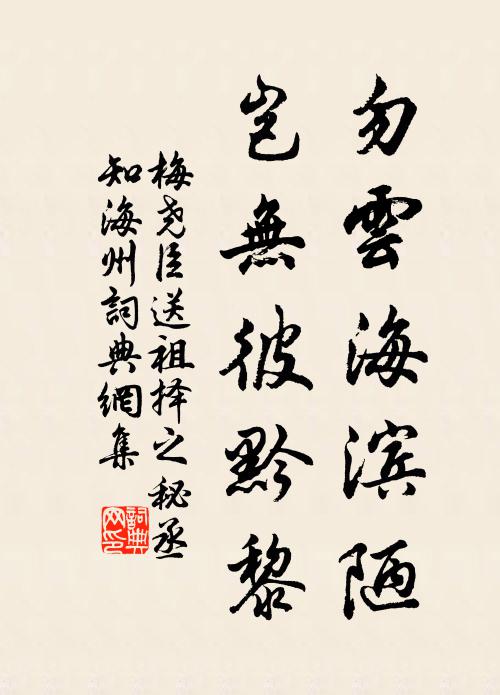 勿雲海滨陋
岂無彼黔黎
梅尧臣送祖择之秘丞
知海州詞典網集
詞典
网印